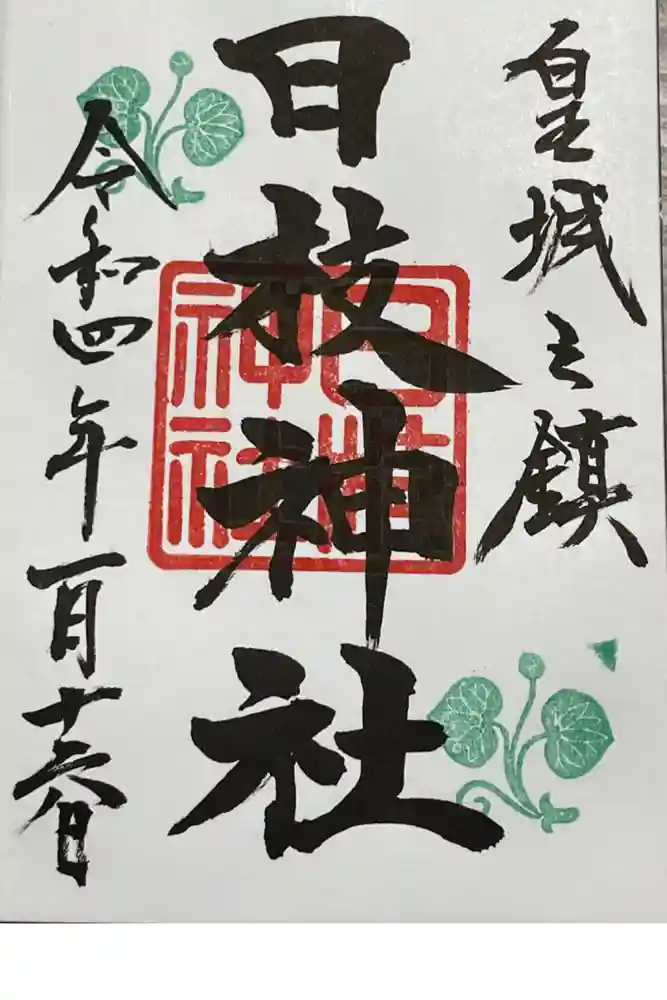 皇城之鎮
日枝神社
令和四年一月十六日